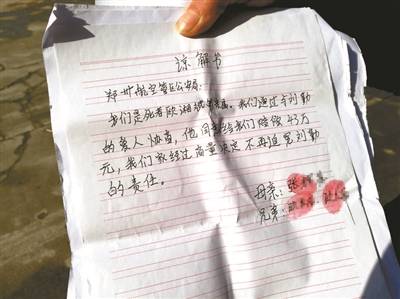 谅解书
郑州航空管区公安局：
我们是死者欧湘斌的家属。我们通过与刘勤
的家人协商，他同意给我们赔偿43万
元，我们家经过商量决定不再追究刘勤
的责任。
母亲：张
兄弟：欧